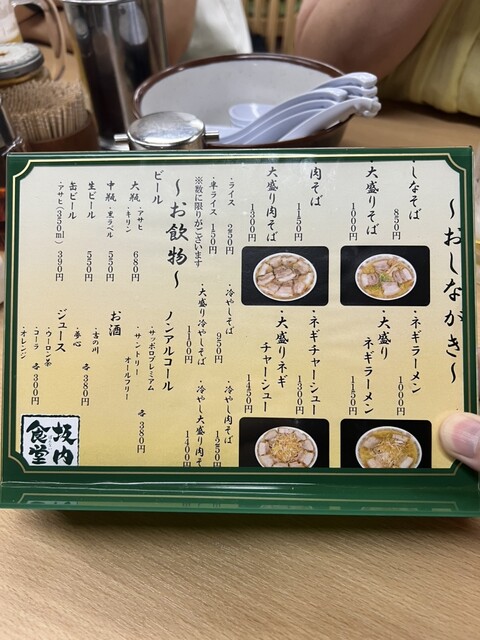 〜おしながき〜
・しなそば
850円
・大盛りそば
1000円
・肉そば
1150円
・大盛り肉そば
1300円
・ライス 250円
・半ライス 150円
※数に限りがございます
・ネギラーメン
1000円
・大盛り
ネギラーメン
1150円
・ネギチャーシュー
1300円
・大盛りネギ
チャーシュー
1450円
・冷やしそば
950円
・大盛り冷やしそば
1100円
・冷やし肉そば
1250円
・冷やし大盛り肉そ
1400円
〜お飲物〜
ビール
大瓶 ・アサヒ
・キリン
680円
中瓶 ・黒ラベル 550円
生ビール 550円
缶ビール
・アサヒ(350ml) 390円
ノンアルコール
・サッポロプレミアム
・サントリー
オールフリー
各380円
お酒
・吉の川
・夢心
各380円
ジュース
・ウーロン茶
・コーラ
・オレンジ
各300円
坂内
食堂